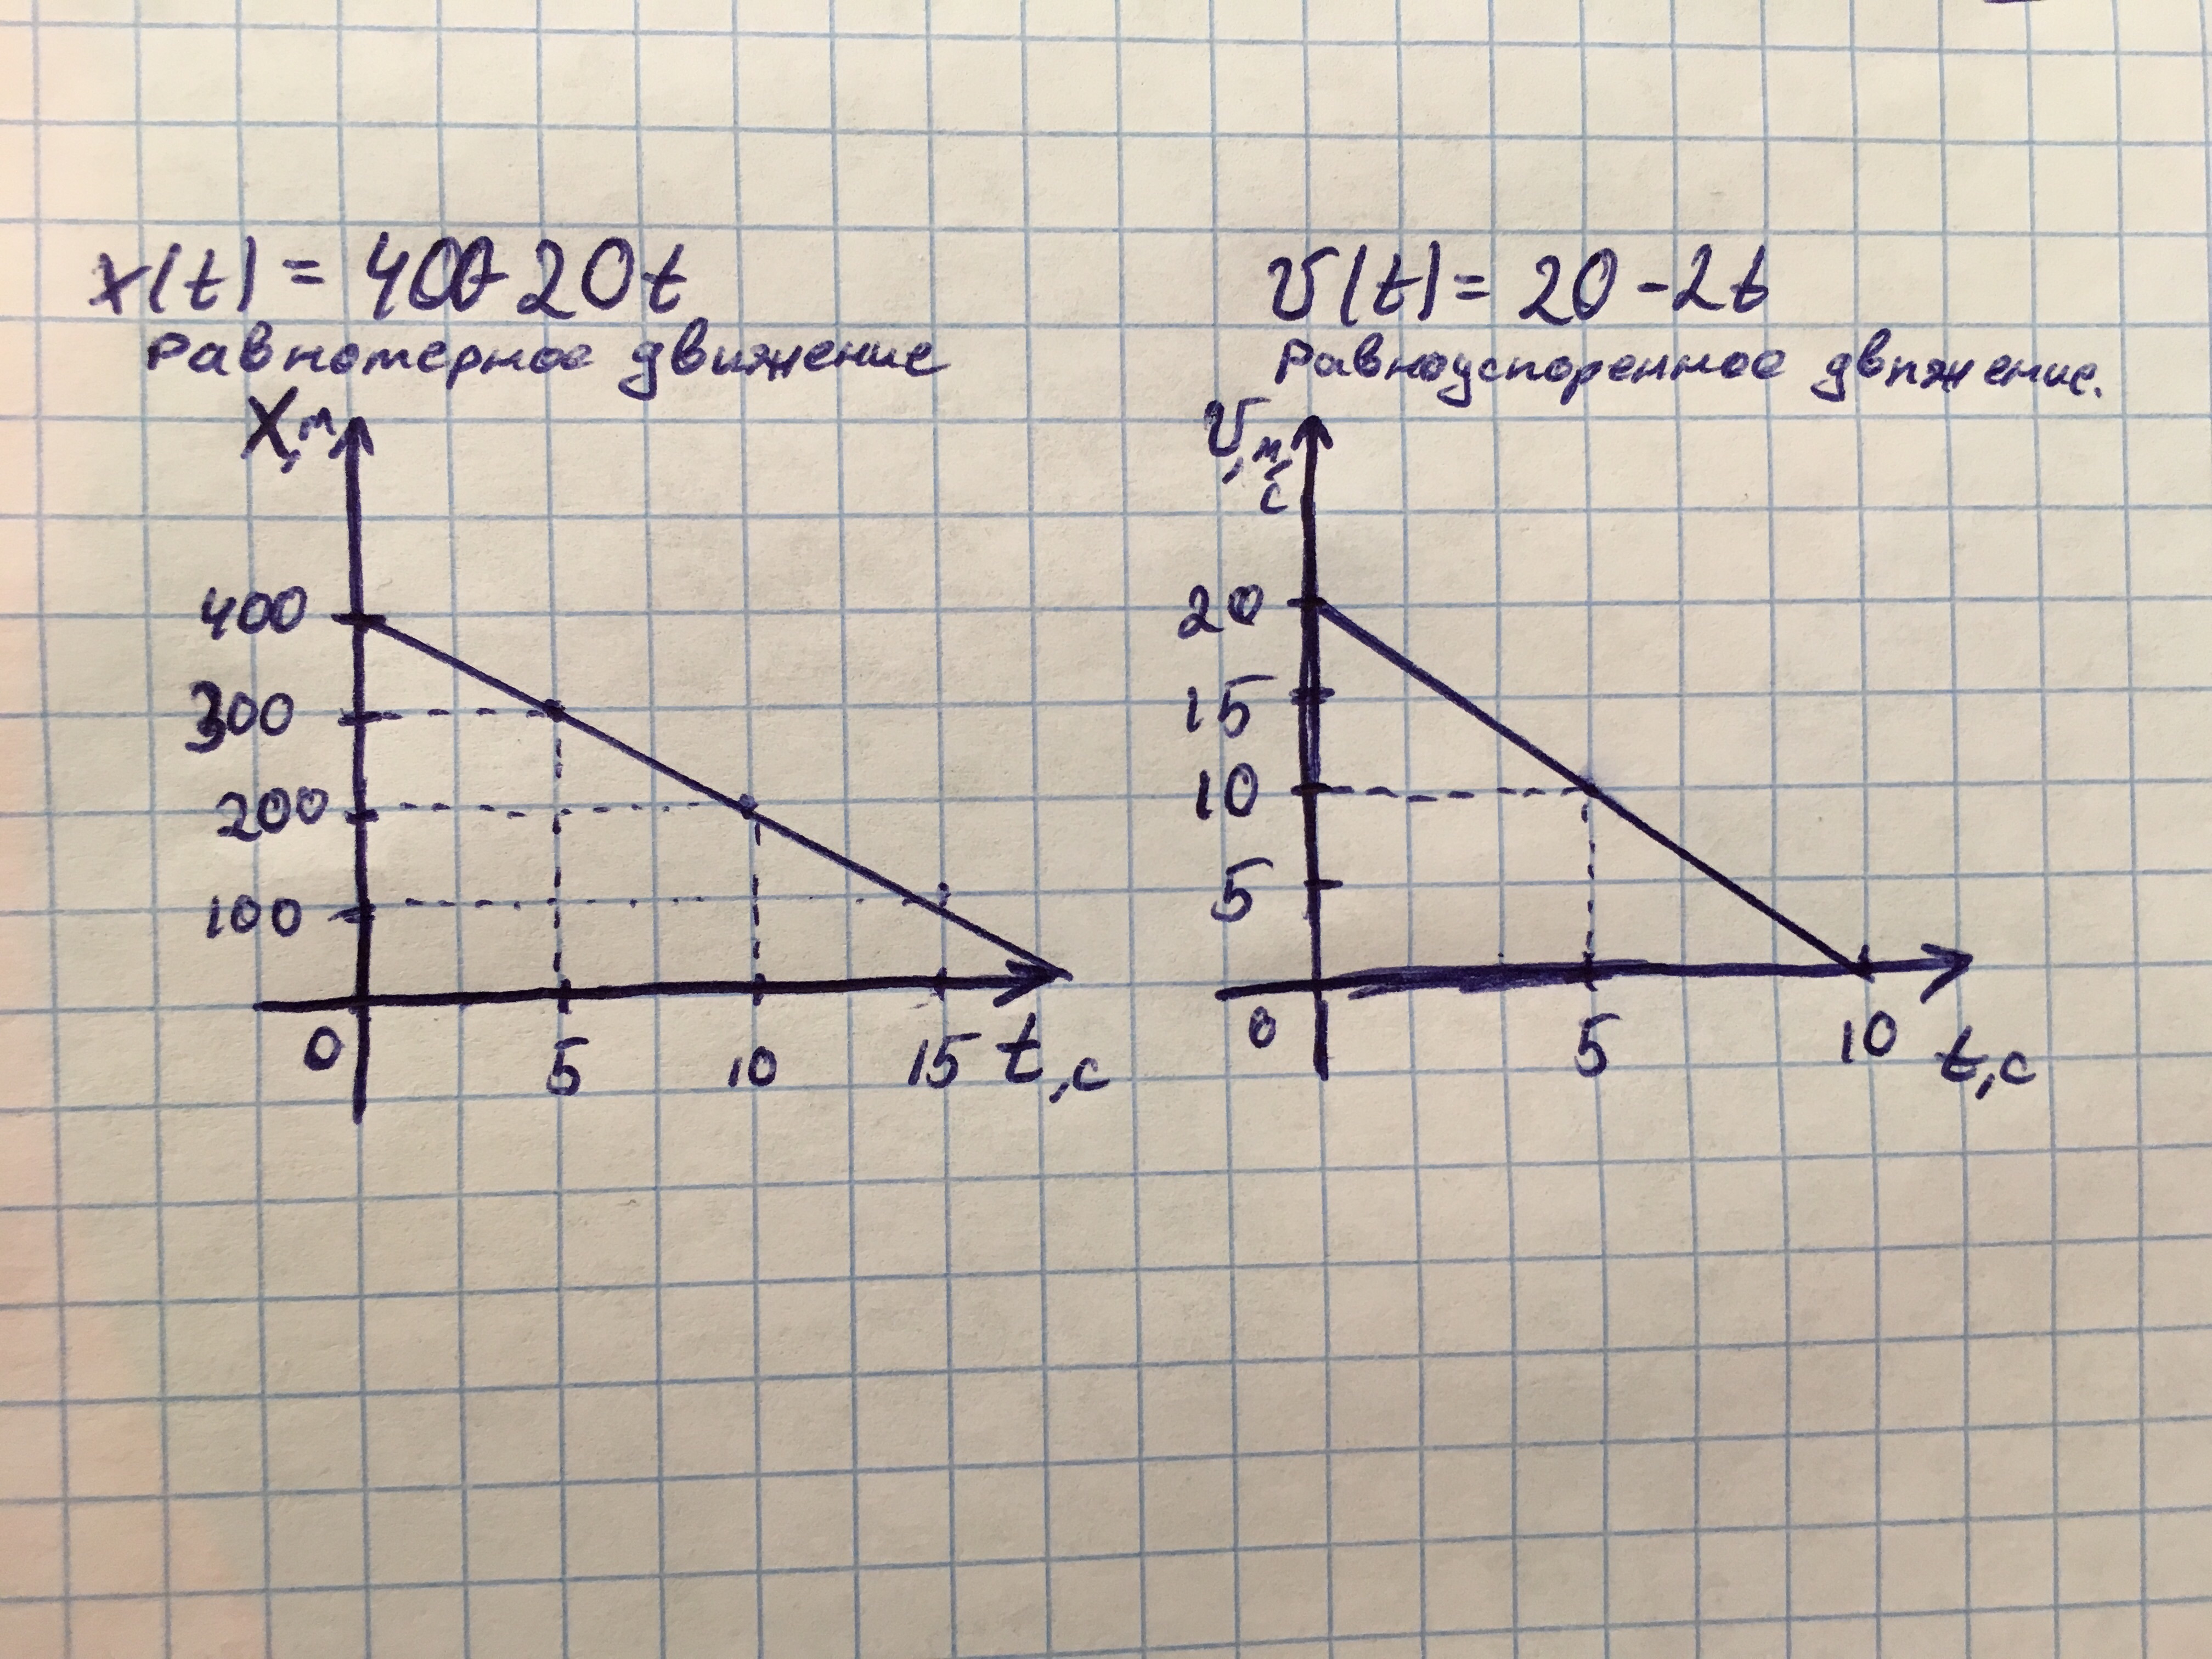 x(t) = 400-20t
Равномерное движение
X,м
400
300
200
100
0
5
10
15
t,с
υ(t) = 20-2t
Равноускоренное движение.
υ,м/с
20
15
10
5
0
5
10
t,с